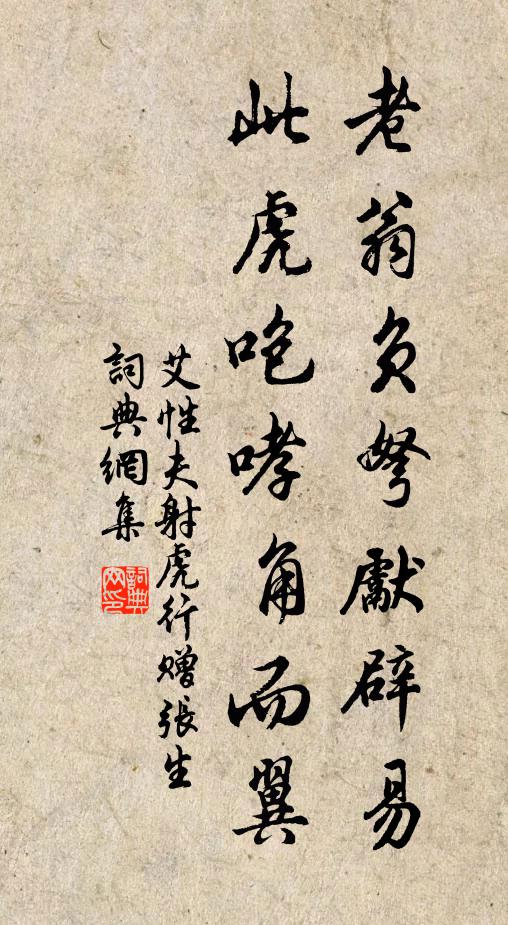 老翁負弩獻辟易
此虎咆哮角而翼
艾性夫射虎行贈張生
詞典網集
詞典
网印